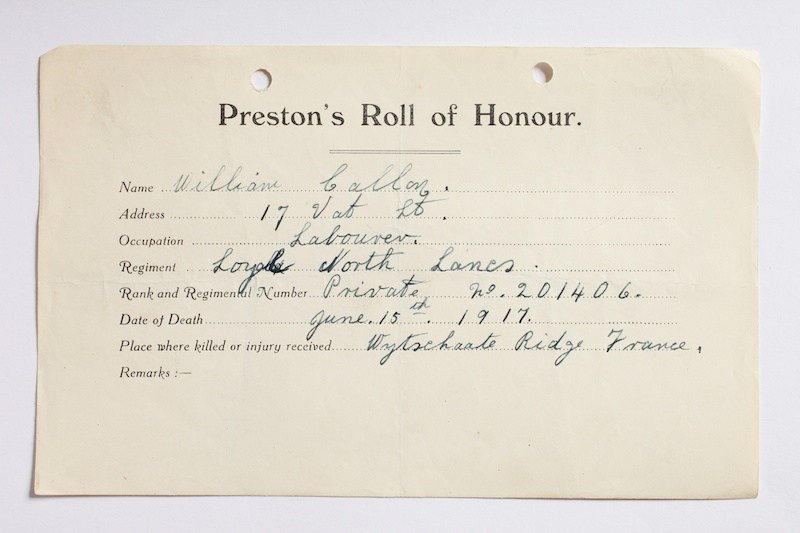 Preston's Roll of Honour.
Name William Callon.
Address 17 Vat St.
Occupation Labourer.
Regiment Loyal North Lancs.
Rank and Regimental Number Private no. 201406.
Date of Death June. 15th. 1917.
Place where killed or injury received Wytschaate Ridge France.
Remarks :—